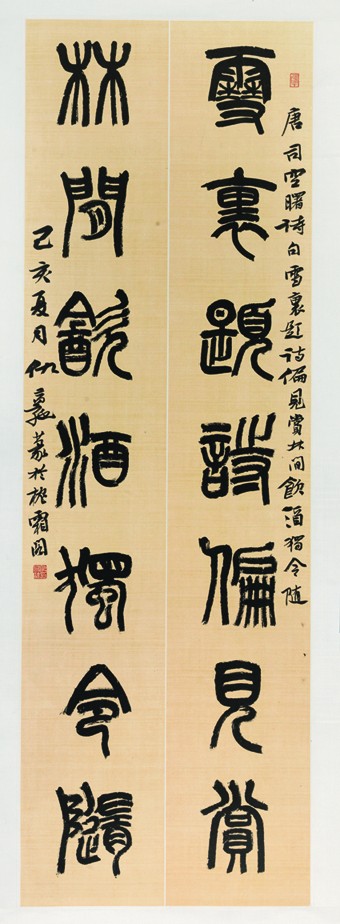 唐司空曙詩句雪裏題詩偏見賞林间飲酒獨令随
雪裏題詩偏見賞
林間飲酒獨令隨
己亥夏月篆於霜閣